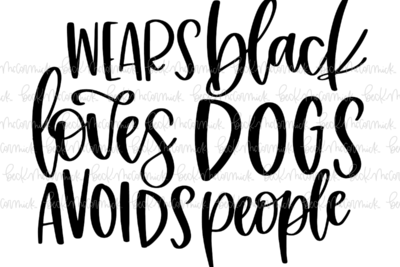 WEARS black
loves DOGS
AVOIDS people